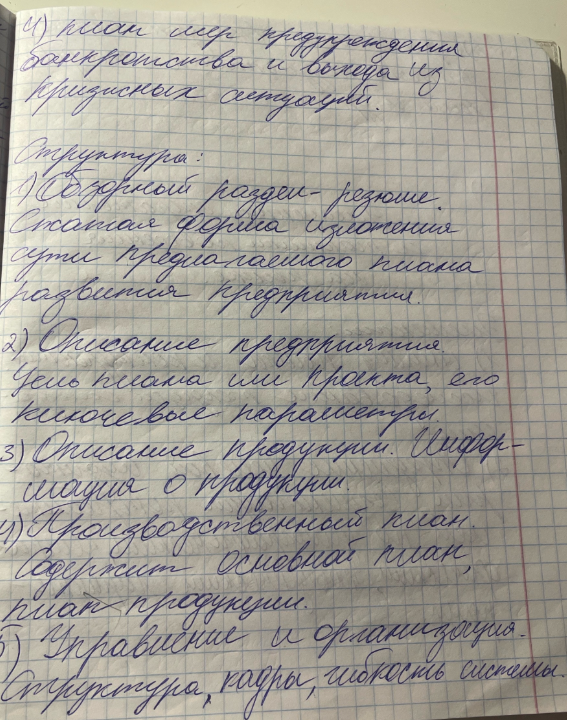 4) план мер предупреждения
банкротства и выхода из
кризисных ситуаций.
Структура:
1) Обзорный раздел - резюме.
Сжатая форма изложения
сути предлагаемого плана
развития предприятия.
2) Описание предприятия.
Цель плана или проекта, его
ключевые параметры
3) Описание продукции. Инфор-
мация о продукции.
4) Производственный план.
Содержит основной план,
план продукции.
5) Управление и организация.
Структура, кадры, гибкость системы.